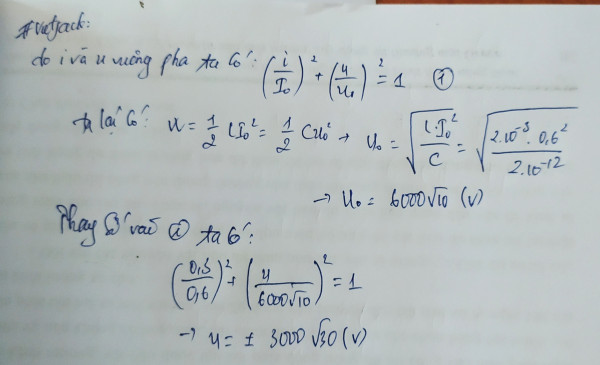 #vietjack:
do i và u vuông pha ta có: (i/I₀)² + (u/u₀)² = 1 ①
ta lại có: W = 1/2 LI₀² = 1/2 Cu₀² → u₀ = √(L.I₀²/C) = √(2.10⁻³.0,6²/2.10⁻¹²)
→ u₀ = 6000√10 (V)
Thay số vào ① ta có:
(0,3/0,6)² + (u/6000√10)² = 1
→ u = ± 3000√30 (V)